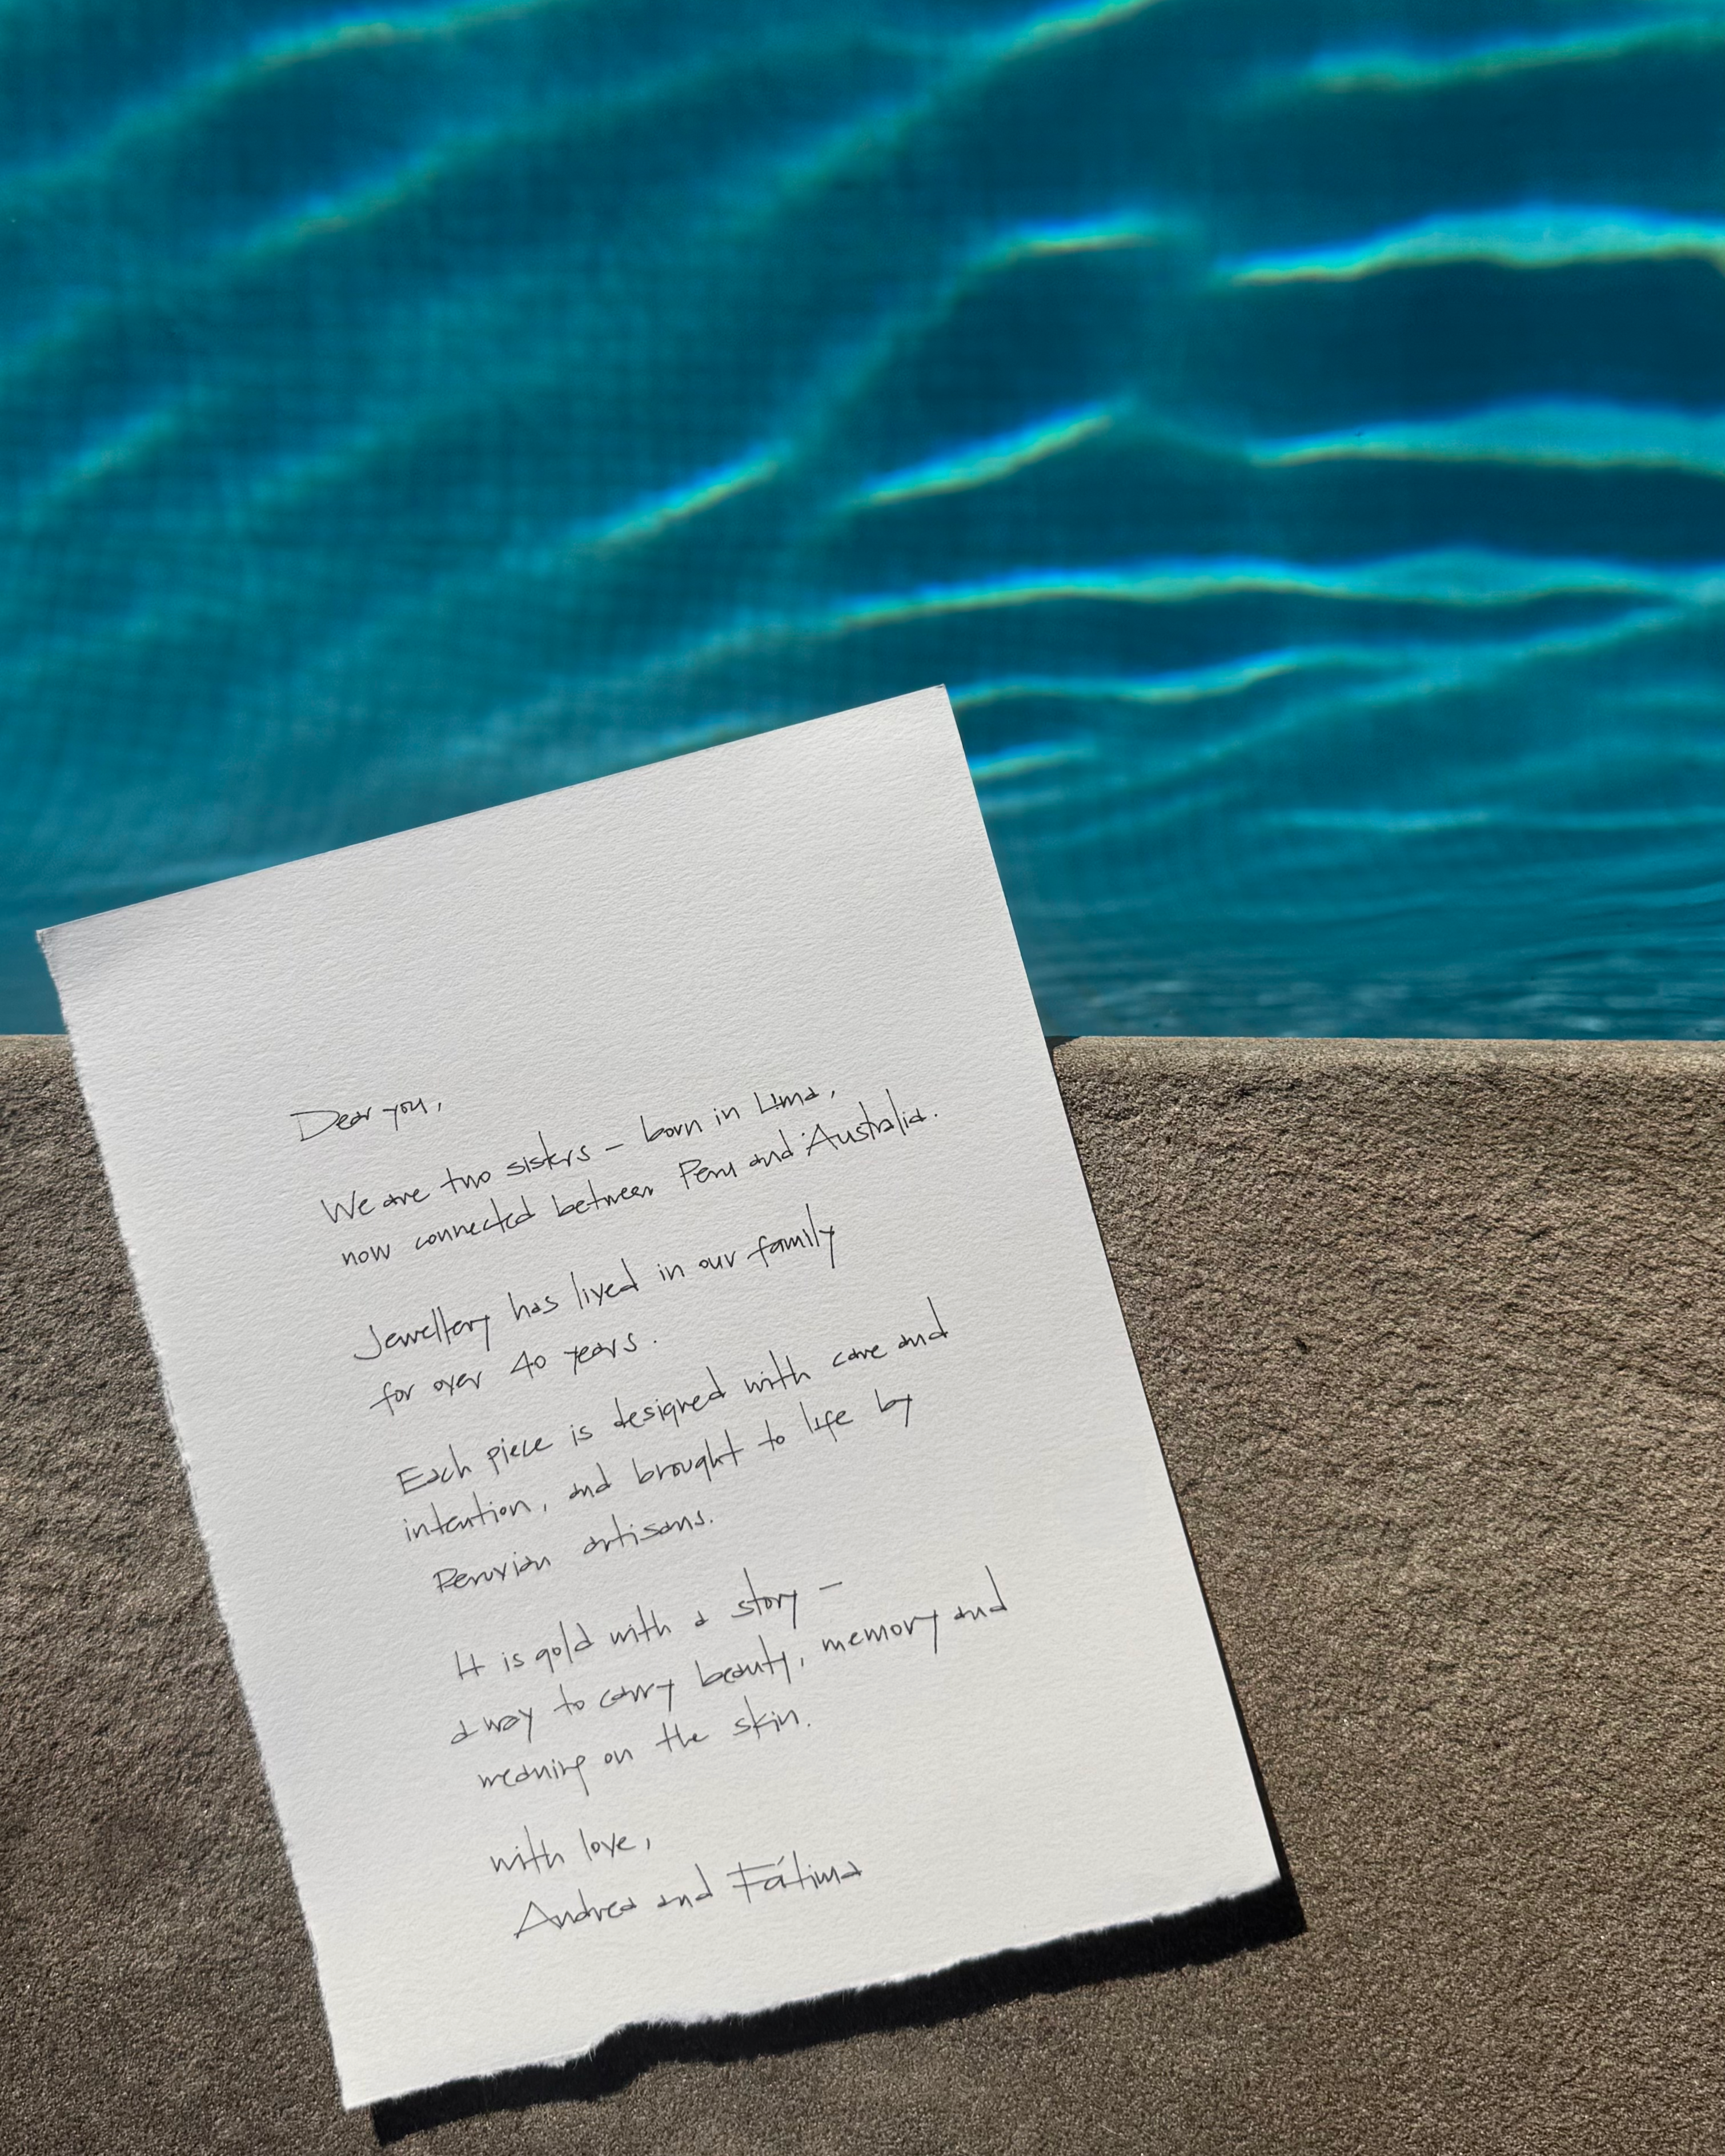 Dear you,
We are two sisters – born in Lima,
now connected between Peru and Australia.
Jewellery has lived in our family
for over 40 years.
Each piece is designed with care and
intention, and brought to life by
Peruvian artisans.
It is gold with a story –
a way to carry beauty, memory and
meaning on the skin.
with love,
Andrea and Fátima